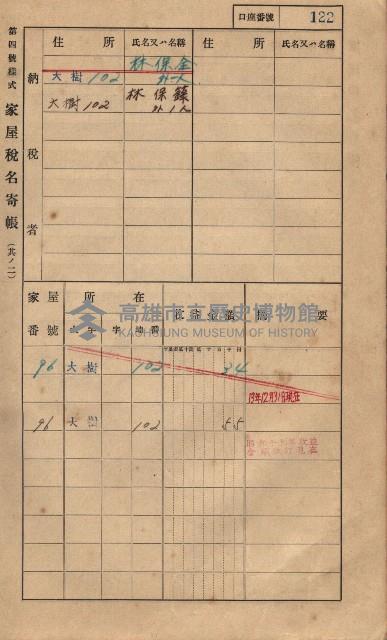 口座番號 122
第四號樣式 家屋稅名寄帳 (其ノ二)
納稅者
住所 氏名又ハ名稱 住所 氏名又ハ名稱
大樹 102 林保全 外一人
大樹 102 林保臻 外1人
家屋番號 所在 收益價額 摘要
大字 字 地番
96 大樹 102 34
13年12月31日現在
96 大樹 102 55
高雄市立歷史博物館
KAOHSIUNG MUSEUM OF HISTORY